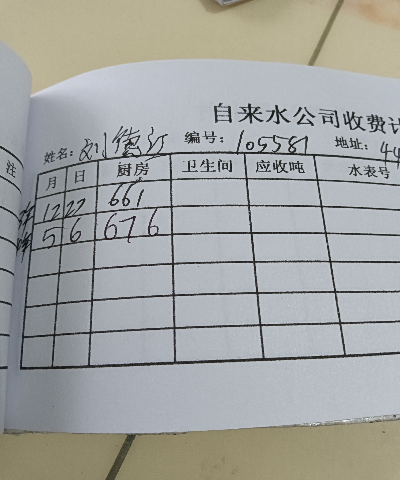 自来水公司收费计
姓名: 刘德江 编号: 105581 地址: 44
注 月 日 厨房 卫生间 应收吨 水表号
12 22 661
5 6 676